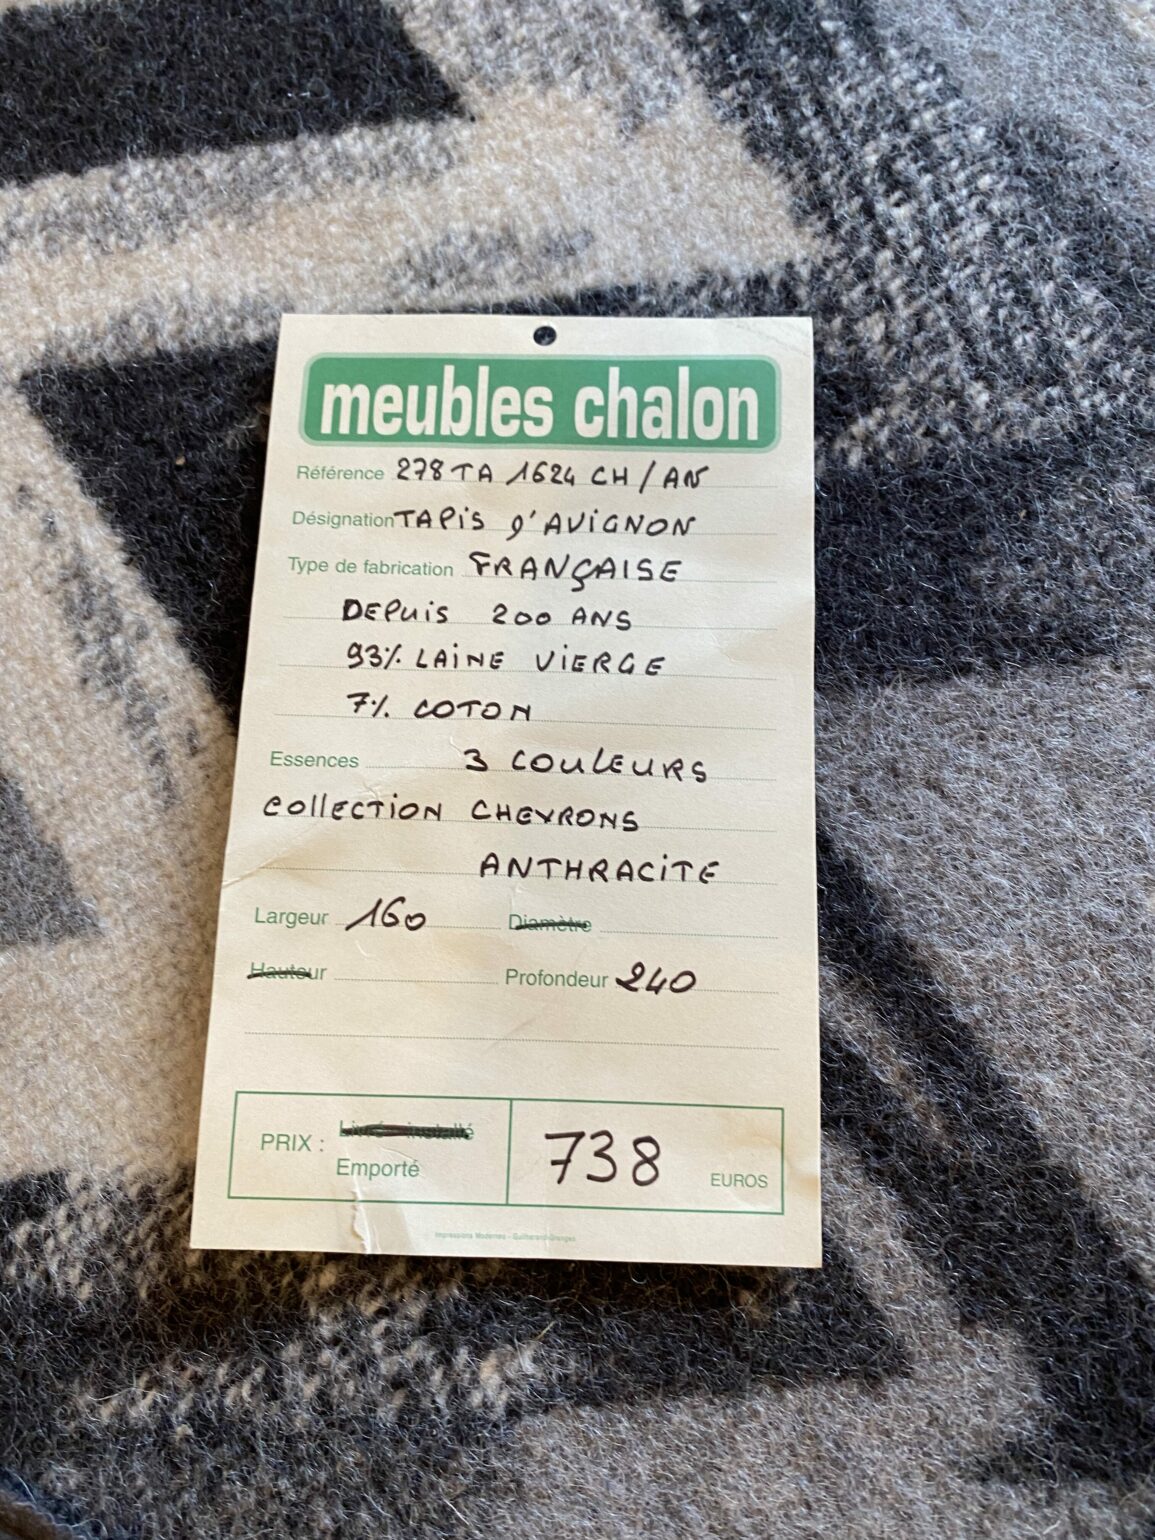 meubles chalon
Référence 278 TA 1624 CH / AN
Désignation TAPIS D'AVIGNON
Type de fabrication FRANÇAISE
DEPUIS 200 ANS
93% LAINE VIERGE
7% COTON
Essences 3 COULEURS
COLLECTION CHEVRONS
ANTHRACITE
Largeur 160 Diamètre
Hauteur Profondeur 240
PRIX : Livré - installé
Emporté 738 EUROS
Impressions Modernes - Guilherand-Granges